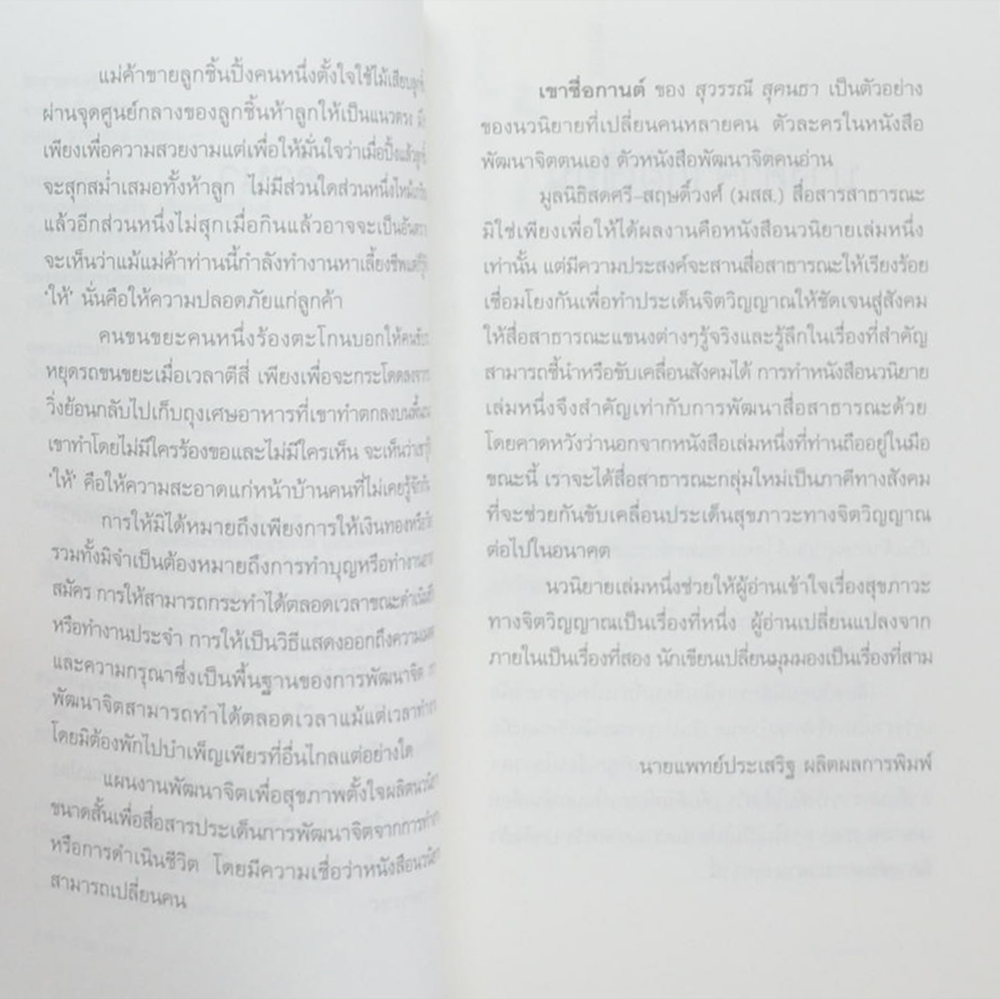 แม่ค้าขายลูกชิ้นปิ้งคนหนึ่งตั้งใจใช้ไม้เสียบลูกชิ้น
ผ่านจุดศูนย์กลางของลูกชิ้นห้าลูกให้เป็นแนวตรง มิ
เพียงเพื่อความสวยงามแต่เพื่อให้มั่นใจว่าเมื่อปิ้งแล้วลูกชิ้น
จะสุกสม่ำเสมอทั้งห้าลูก ไม่มีส่วนใดส่วนหนึ่งไหม้เกรียม
แล้วอีกส่วนหนึ่งไม่สุกเมื่อกินแล้วอาจจะเป็นอันตราย
จะเห็นว่าแม้แม่ค้าท่านนี้กำลังทำงานหาเลี้ยงชีพแต่รู้จัก
'ให้' นั่นคือให้ความปลอดภัยแก่ลูกค้า
คนขนขยะคนหนึ่งร้องตะโกนบอกให้คนขับ
หยุดรถขนขยะเมื่อเวลาตีสี่ เพียงเพื่อจะกระโดดลงจากรถ
วิ่งย้อนกลับไปเก็บถุงเศษอาหารที่เขาทำตกลงบนพื้นถนน
เขาทำโดยไม่มีใครร้องขอและไม่มีใครเห็น จะเห็นว่าเขารู้จัก
'ให้' คือให้ความสะอาดแก่หน้าบ้านคนที่ไม่เคยรู้จักกัน
การให้มิได้หมายถึงเพียงการให้เงินทองหรือ
รวมทั้งมิจำเป็นต้องหมายถึงการทำบุญหรือทำงานอาสา
สมัคร การให้สามารถกระทำได้ตลอดเวลาขณะดำเนินชีวิต
หรือทำงานประจำ การให้เป็นวิธีแสดงออกถึงความเมตตา
และความกรุณาซึ่งเป็นพื้นฐานของการพัฒนาจิต การ
พัฒนาจิตสามารถทำได้ตลอดเวลาแม้แต่เวลาทำงาน
โดยมิต้องพักไปบำเพ็ญเพียรที่อื่นไกลแต่อย่างใด
แผนงานพัฒนาจิตเพื่อสุขภาพตั้งใจผลิตนวนิยาย
ขนาดสั้นเพื่อสื่อสารประเด็นการพัฒนาจิตจากการทำงาน
หรือการดำเนินชีวิต โดยมีความเชื่อว่าหนังสือนวนิยาย
สามารถเปลี่ยนคน
เขาชื่อกานต์ ของ สุวรรณี สุคนธา เป็นตัวอย่าง
ของนวนิยายที่เปลี่ยนคนหลายคน ตัวละครในหนังสือ
พัฒนาจิตตนเอง ตัวหนังสือพัฒนาจิตคนอ่าน
มูลนิธิสดศรี–สฤษดิ์วงศ์ (มสส.) สื่อสารสาธารณะ
มิใช่เพียงเพื่อให้ได้ผลงานคือหนังสือนวนิยายเล่มหนึ่ง
เท่านั้น แต่มีความประสงค์จะสานสื่อสาธารณะให้เรียงร้อย
เชื่อมโยงกันเพื่อทำประเด็นจิตวิญญาณให้ชัดเจนสู่สังคม
ให้สื่อสาธารณะแขนงต่างๆรู้จริงและรู้ลึกในเรื่องที่สำคัญ
สามารถชี้นำหรือขับเคลื่อนสังคมได้ การทำหนังสือนวนิยาย
เล่มหนึ่งจึงสำคัญเท่ากับการพัฒนาสื่อสาธารณะด้วย
โดยคาดหวังว่านอกจากหนังสือเล่มหนึ่งที่ท่านถืออยู่ในมือ
ขณะนี้ เราจะได้สื่อสาธารณะกลุ่มใหม่เป็นภาคีทางสังคม
ที่จะช่วยกันขับเคลื่อนประเด็นสุขภาวะทางจิตวิญญาณ
ต่อไปในอนาคต
นวนิยายเล่มหนึ่งช่วยให้ผู้อ่านเข้าใจเรื่องสุขภาวะ
ทางจิตวิญญาณเป็นเรื่องที่หนึ่ง ผู้อ่านเปลี่ยนแปลงจาก
ภายในเป็นเรื่องที่สอง นักเขียนเปลี่ยนมุมมองเป็นเรื่องที่สาม
นายแพทย์ประเสริฐ ผลิตผลการพิมพ์